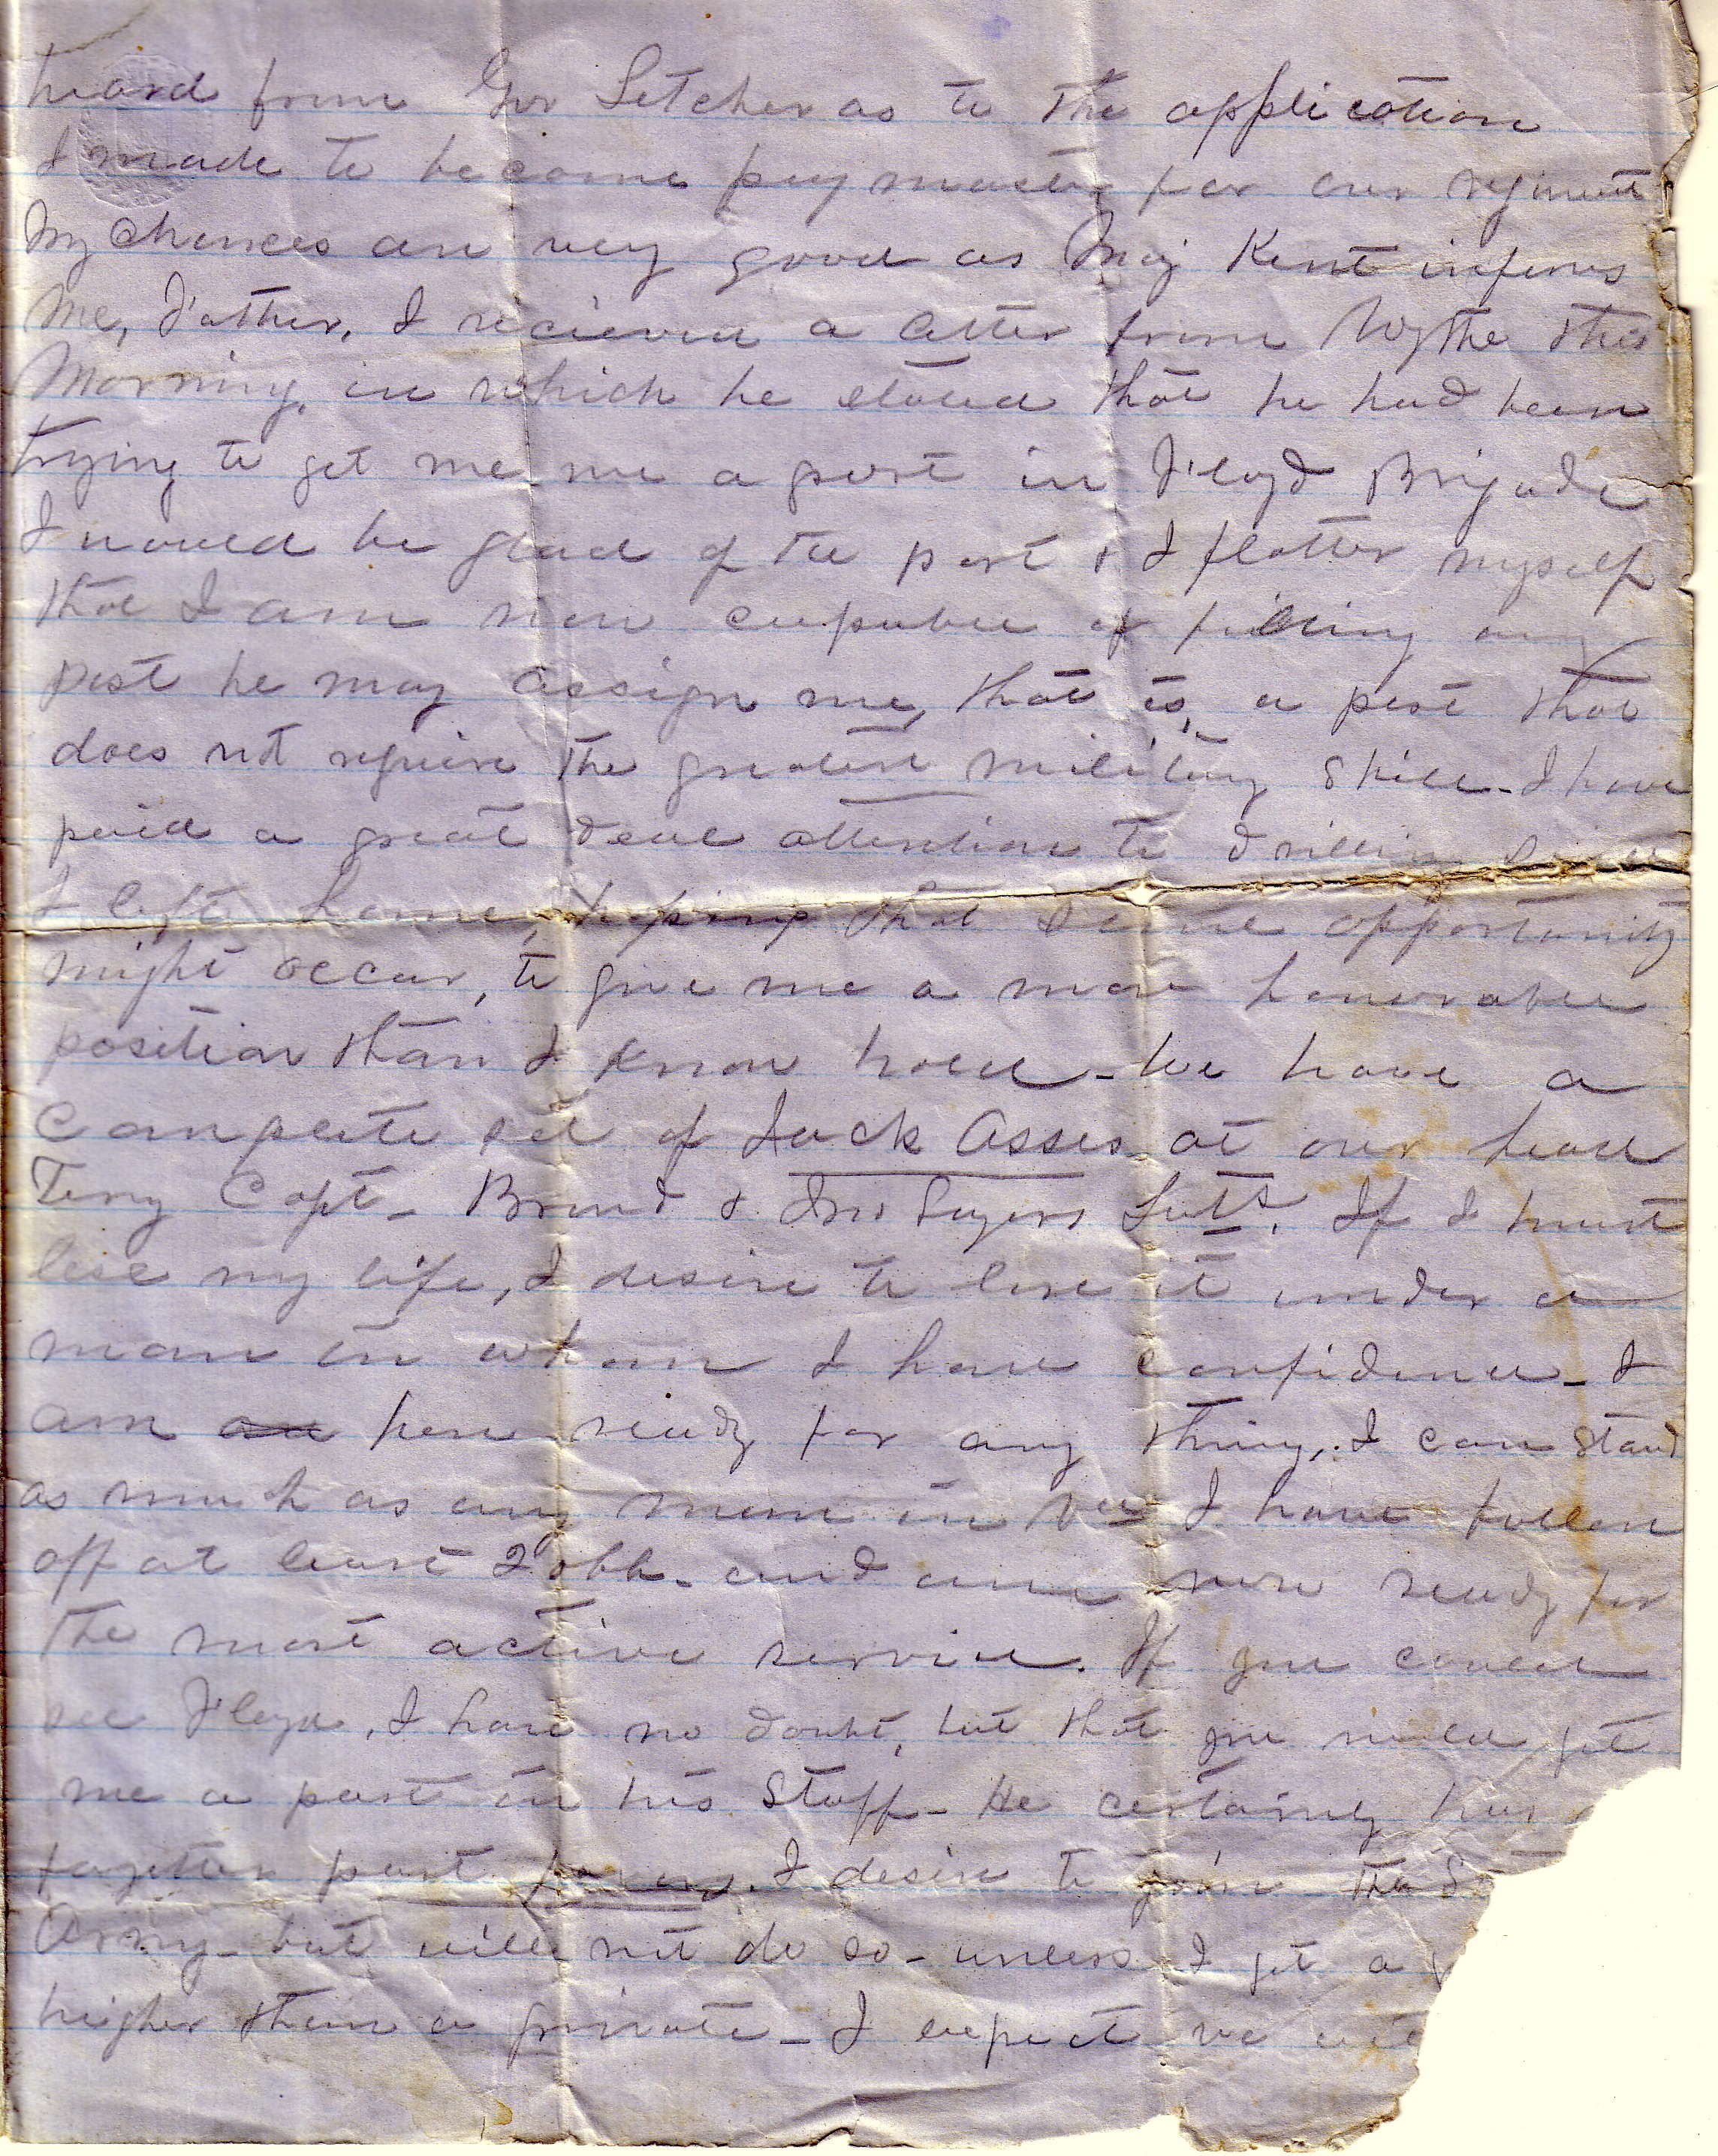 heard from Gov Letcher as to the application
I made to become paymaster for our regiment
My chances are very good as Maj Kent informs
me, Father, I recieved a letter from Wythe this
Morning, in which he stated that he had been
trying to get me me a post in Floyd Brigade
I would be glad of the post & I flatter myself
that I am now capable of filling any
post he may assign me, that is, a post that
does not require the greatest military skill - I have
paid a great deal attention to drilling since
I left home, hoping that some opportunity
might occur, to give me a more honorable
position than I know hold - We have a
complete set of Jack Asses at our head
Terry Capt - & Sayers Luts. If I must
lose my life, I desire to lose it under a
man in whom I have confidence - I
am here ready for any thing, I can stand
as much as any man in Va I have fallen
off at least 20 lbs - and am now ready for
the most active service. If you could
see Floyd, I have no doubt, but that you would get
me a post in his Staff - He certainly has
forgotten past favors. I desire to join the S
Army - but will not do so - unless I get a
higher than a private - I expect we